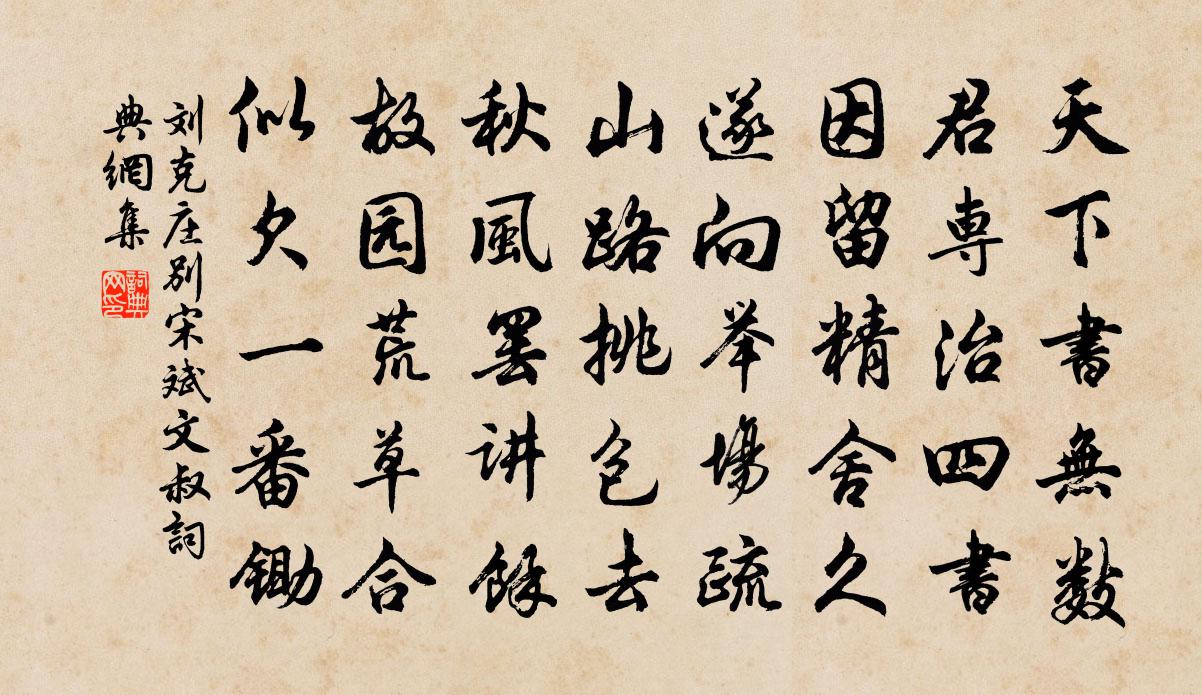 天下書無数
君専治四書
因留精舍久
遂向举場疏
山路挑包去
秋風罢讲餘
故园荒草合
似欠一番锄
刘克庄别宋斌文叔詞
典網集
詞典
网印